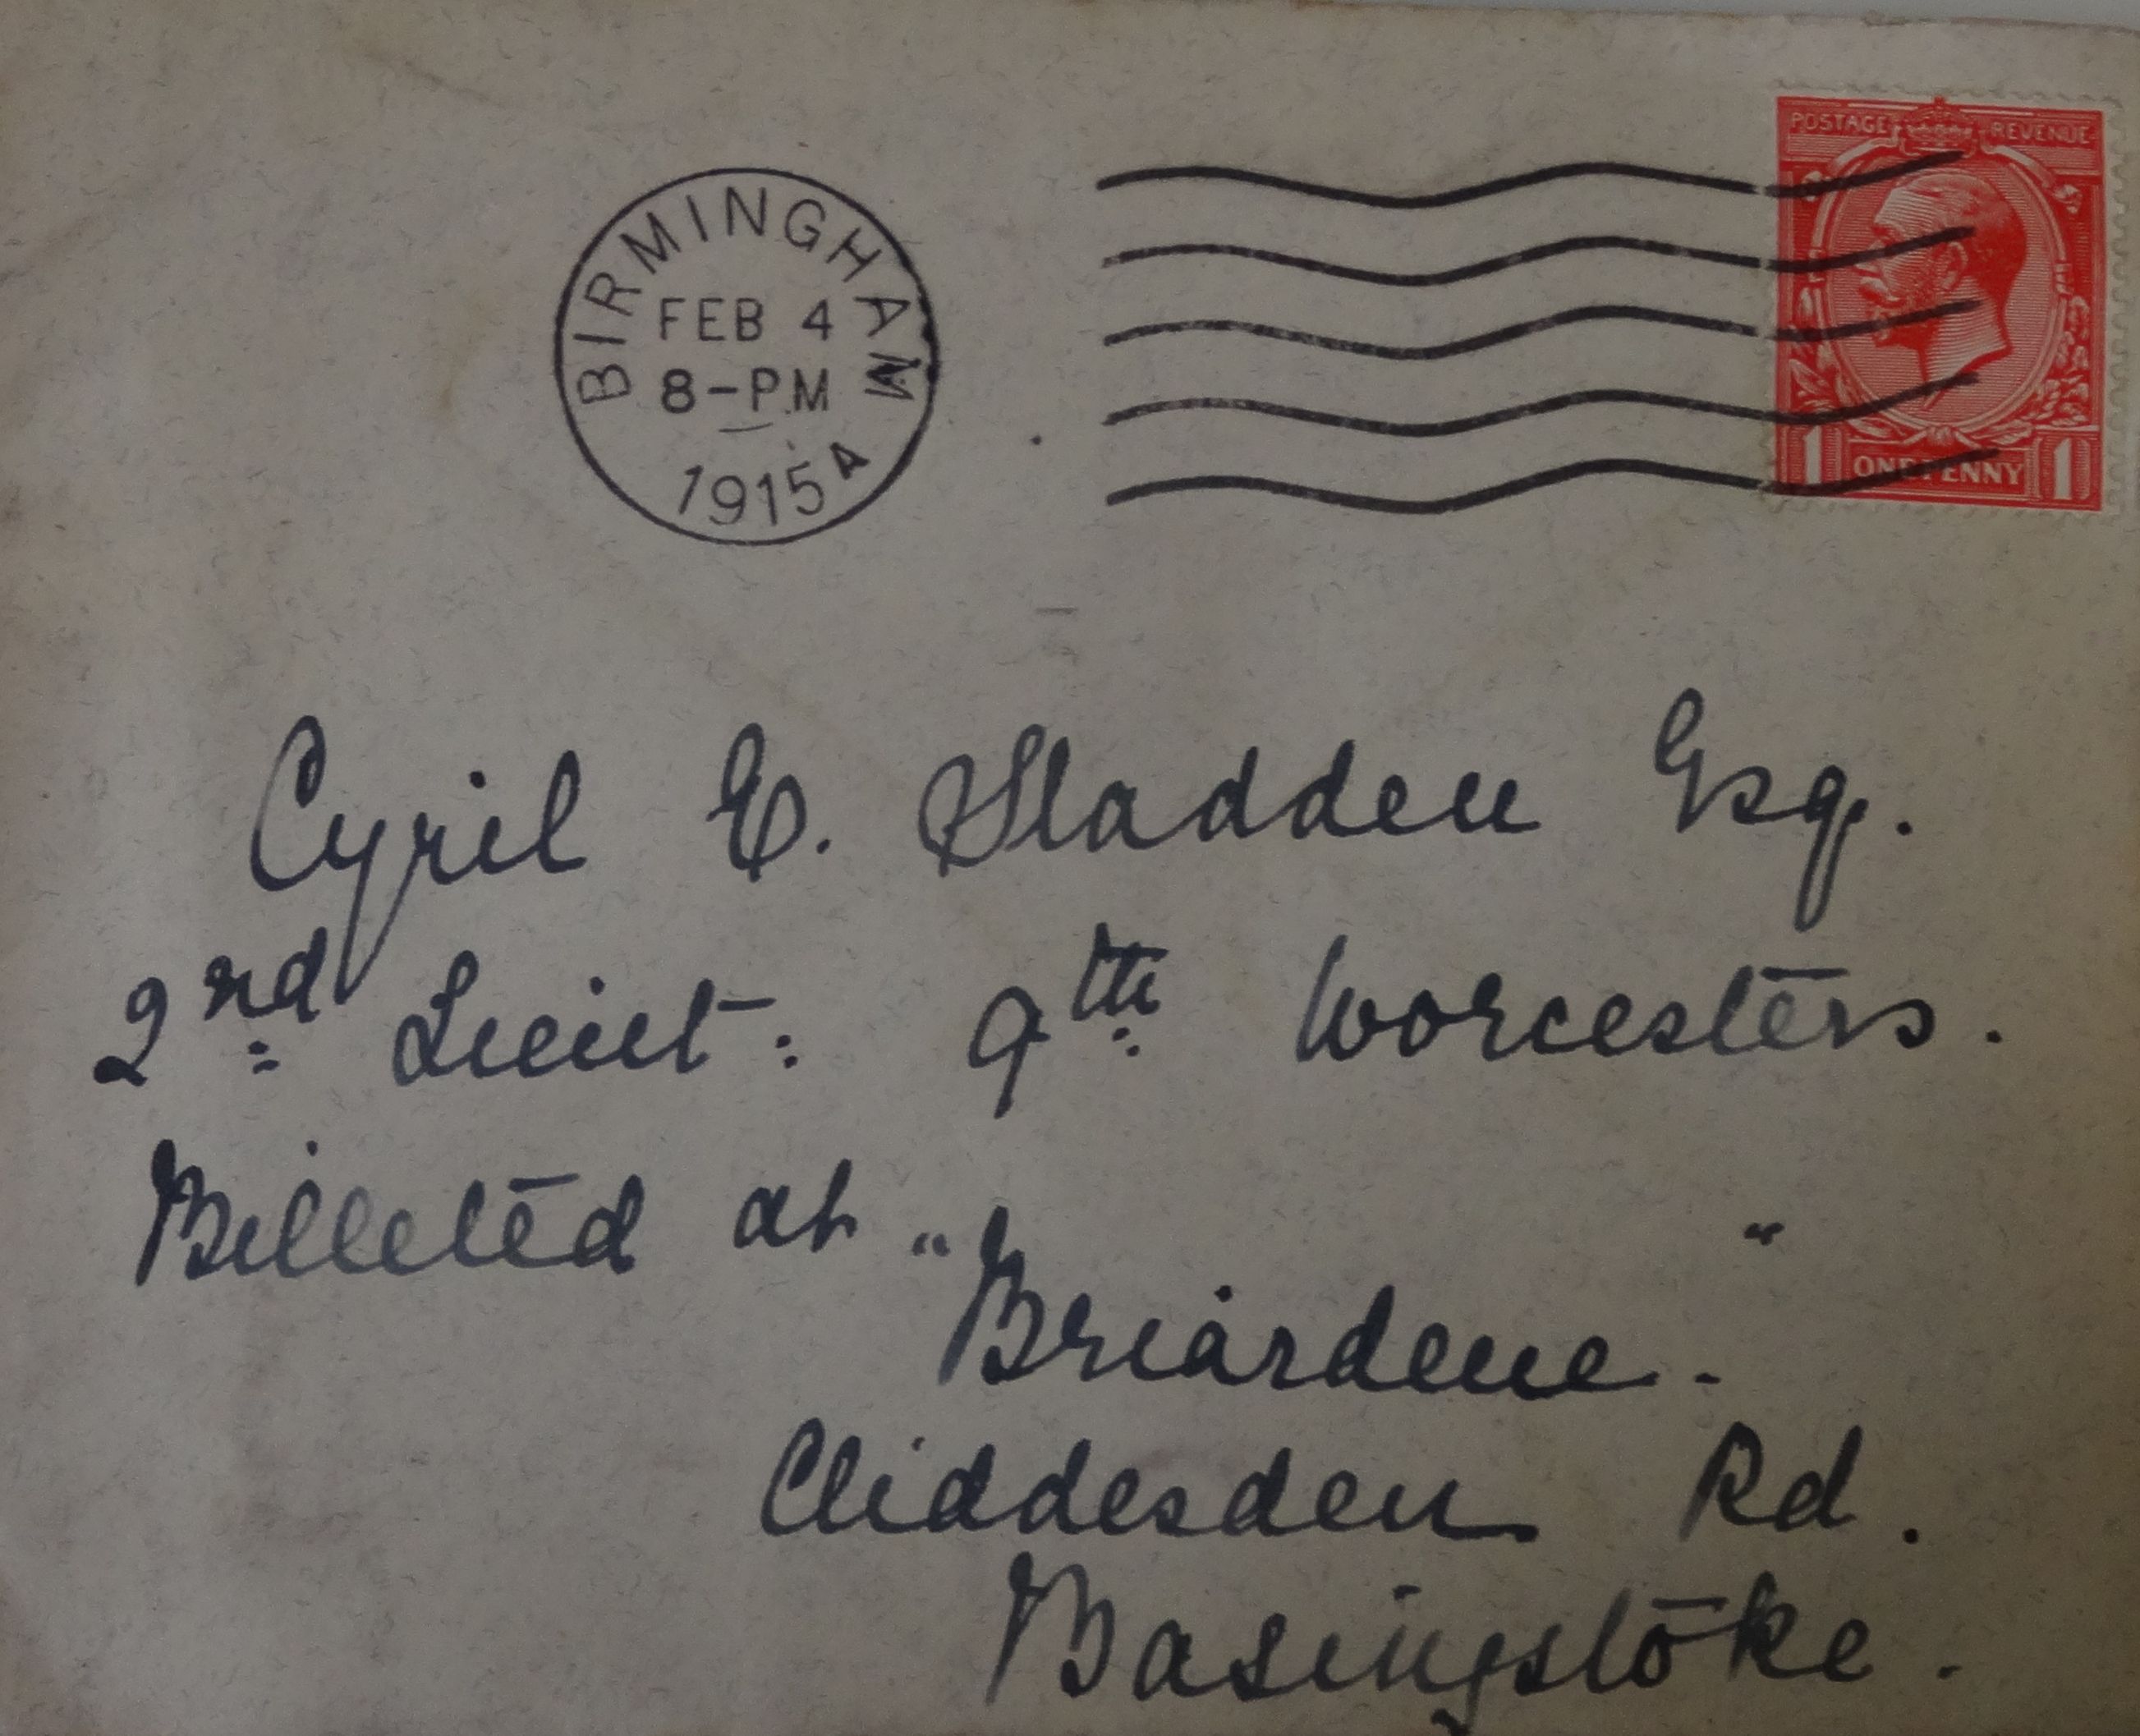 POSTAGE REVENUE
BIRMINGHAM
FEB 4
8-PM
1915 A
1 ONE PENNY 1
Cyril E. Sladden Esq.
2nd Lieut: 9th Worcesters.
Billeted at "Briardene."
Cliddesden Rd.
Basingstoke.